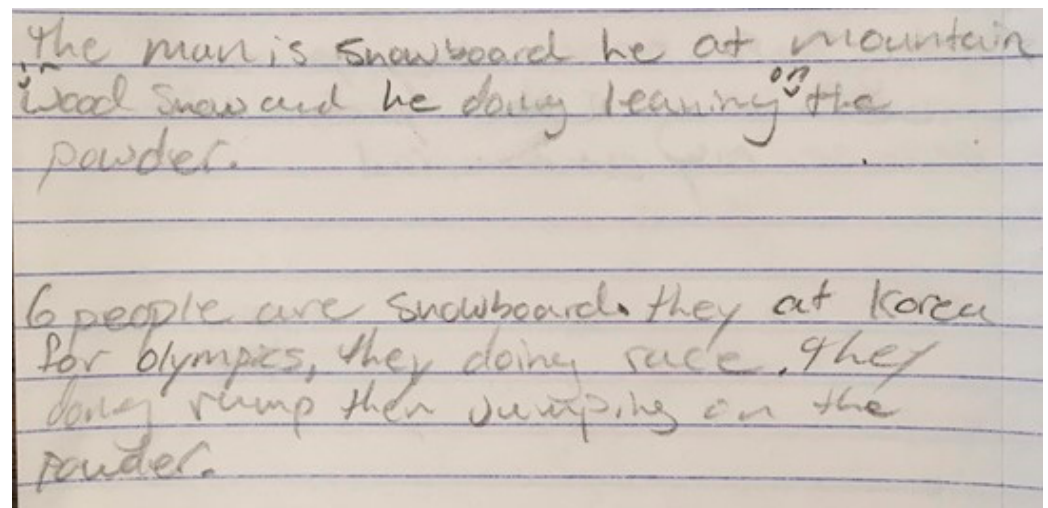 The man is snowboard he at mountain
in wood snow and he doing leaning on the
powder.
6 people are snowboard. they at Korea
for olympics, they doing race. They
doing rump then Jumping on the
powder.